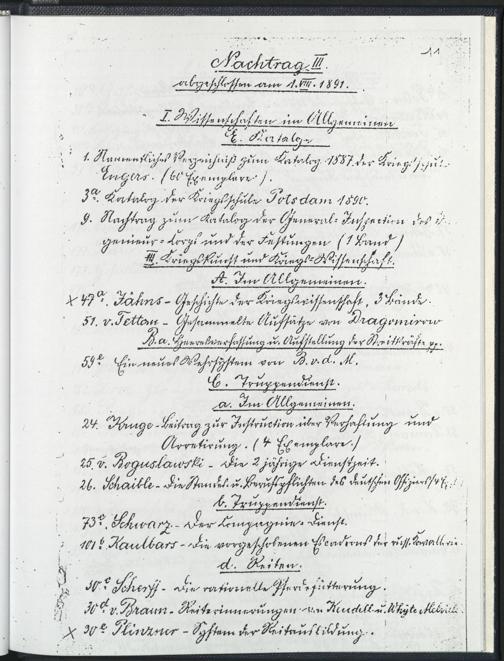 11
Nachtrag III.
abgeschlossen am 1.VIII.1891.
I. Wissenschaften im Allgemeinen
E. Kataloge
1. Namentliches Verzeichniß zum Katalog 1887 der Kriegsschule
Engers. (60 Exemplare).
3a. Katalog der Kriegsschule Potsdam 1890.
9. Nachtrag zum Katalog der General-Inspection des
genieur-Corps und der Festungen (1 Band)
III. Kriegskunst und Kriegs-Wissenschaft.
A. Im Allgemeinen.
x 47a. Jähns - Geschichte der Kriegswissenschaft, 3 Bände.
51. v. Tettau - Gesammelte Aufsätze von Dragomirow
B.a. Heeresverfassung u. Aufstellung der Streitkräfte pp.
59e Ein neues Wehrsystem von B.v.d.M.
C. Truppendienst.
a. Im Allgemeinen.
24. Kruge - Beitrag zur Instruction über Verhaftung und
Arretirung. (4 Exemplare.)
25. v. Boguslawski - Die 2 jährige Dienstzeit.
26. Schaible - Die Standes- u. Berufspflichten des deutschen Offiziers
b. Truppendienst.
73c. Schwarz - Der Compagnie-Dienst.
101b Kaulbars - Die vorgeschobenen Escadrons der russ. Kavallerie
d. Reiten.
30c Scherff - Die rationelle Pferdefütterung.
30d v. Braun - Reiterinnerungen an Keudell u.
x 30e Plinzner - System der Reitausbildung.